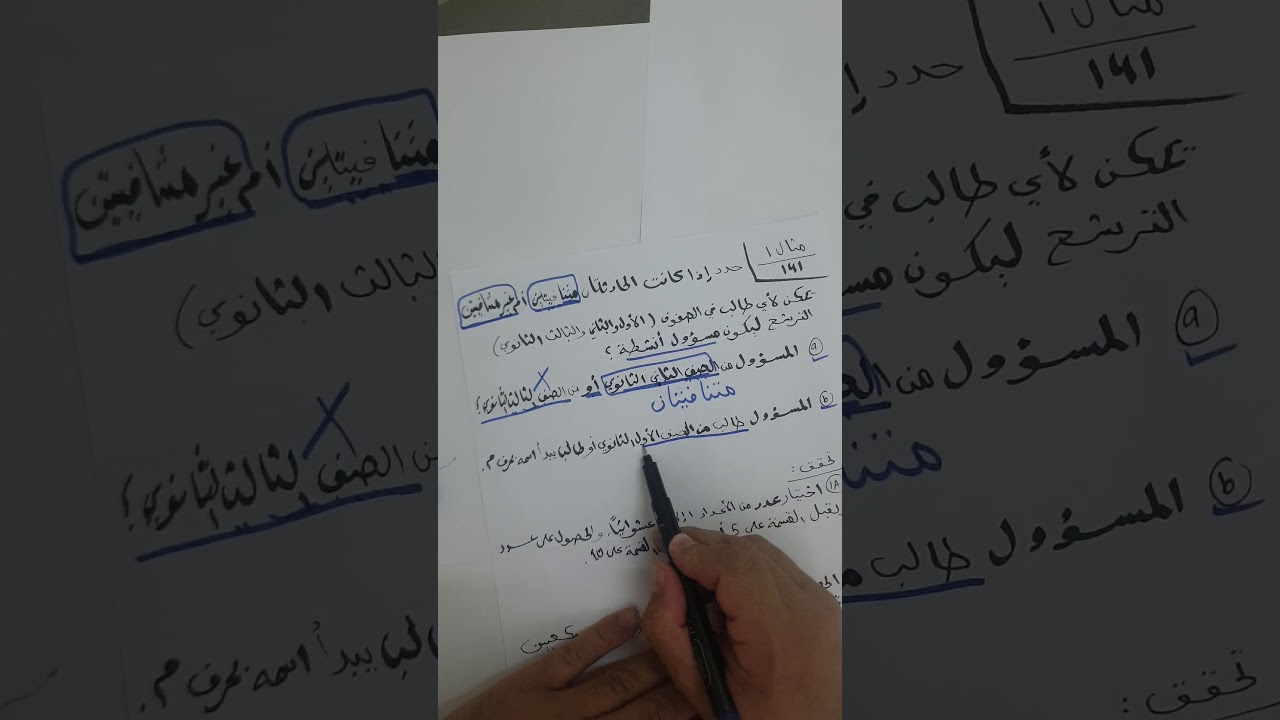 مثال ١
١٤١
حدد إذا كانت الحادثتان متنافيتين أم غير متنافيتين
يمكن لأي طالب في الصفوف (الأول والثاني والثالث الثانوي)
الترشح ليكون مسؤول أنشطة ؟
a المسؤول من الصف الثاني الثانوي أو من الصف الثالث الثانوي ؟
متنافيتان
b المسؤول طالب من الصف الأول الثانوي أو طالب يبدأ اسمه بحرف م .
تحقق :
1A اختيار عدد من الأعداد عشوائيًا، والحصول على عدد
يقبل القسمة على 5 القسمة على 10.